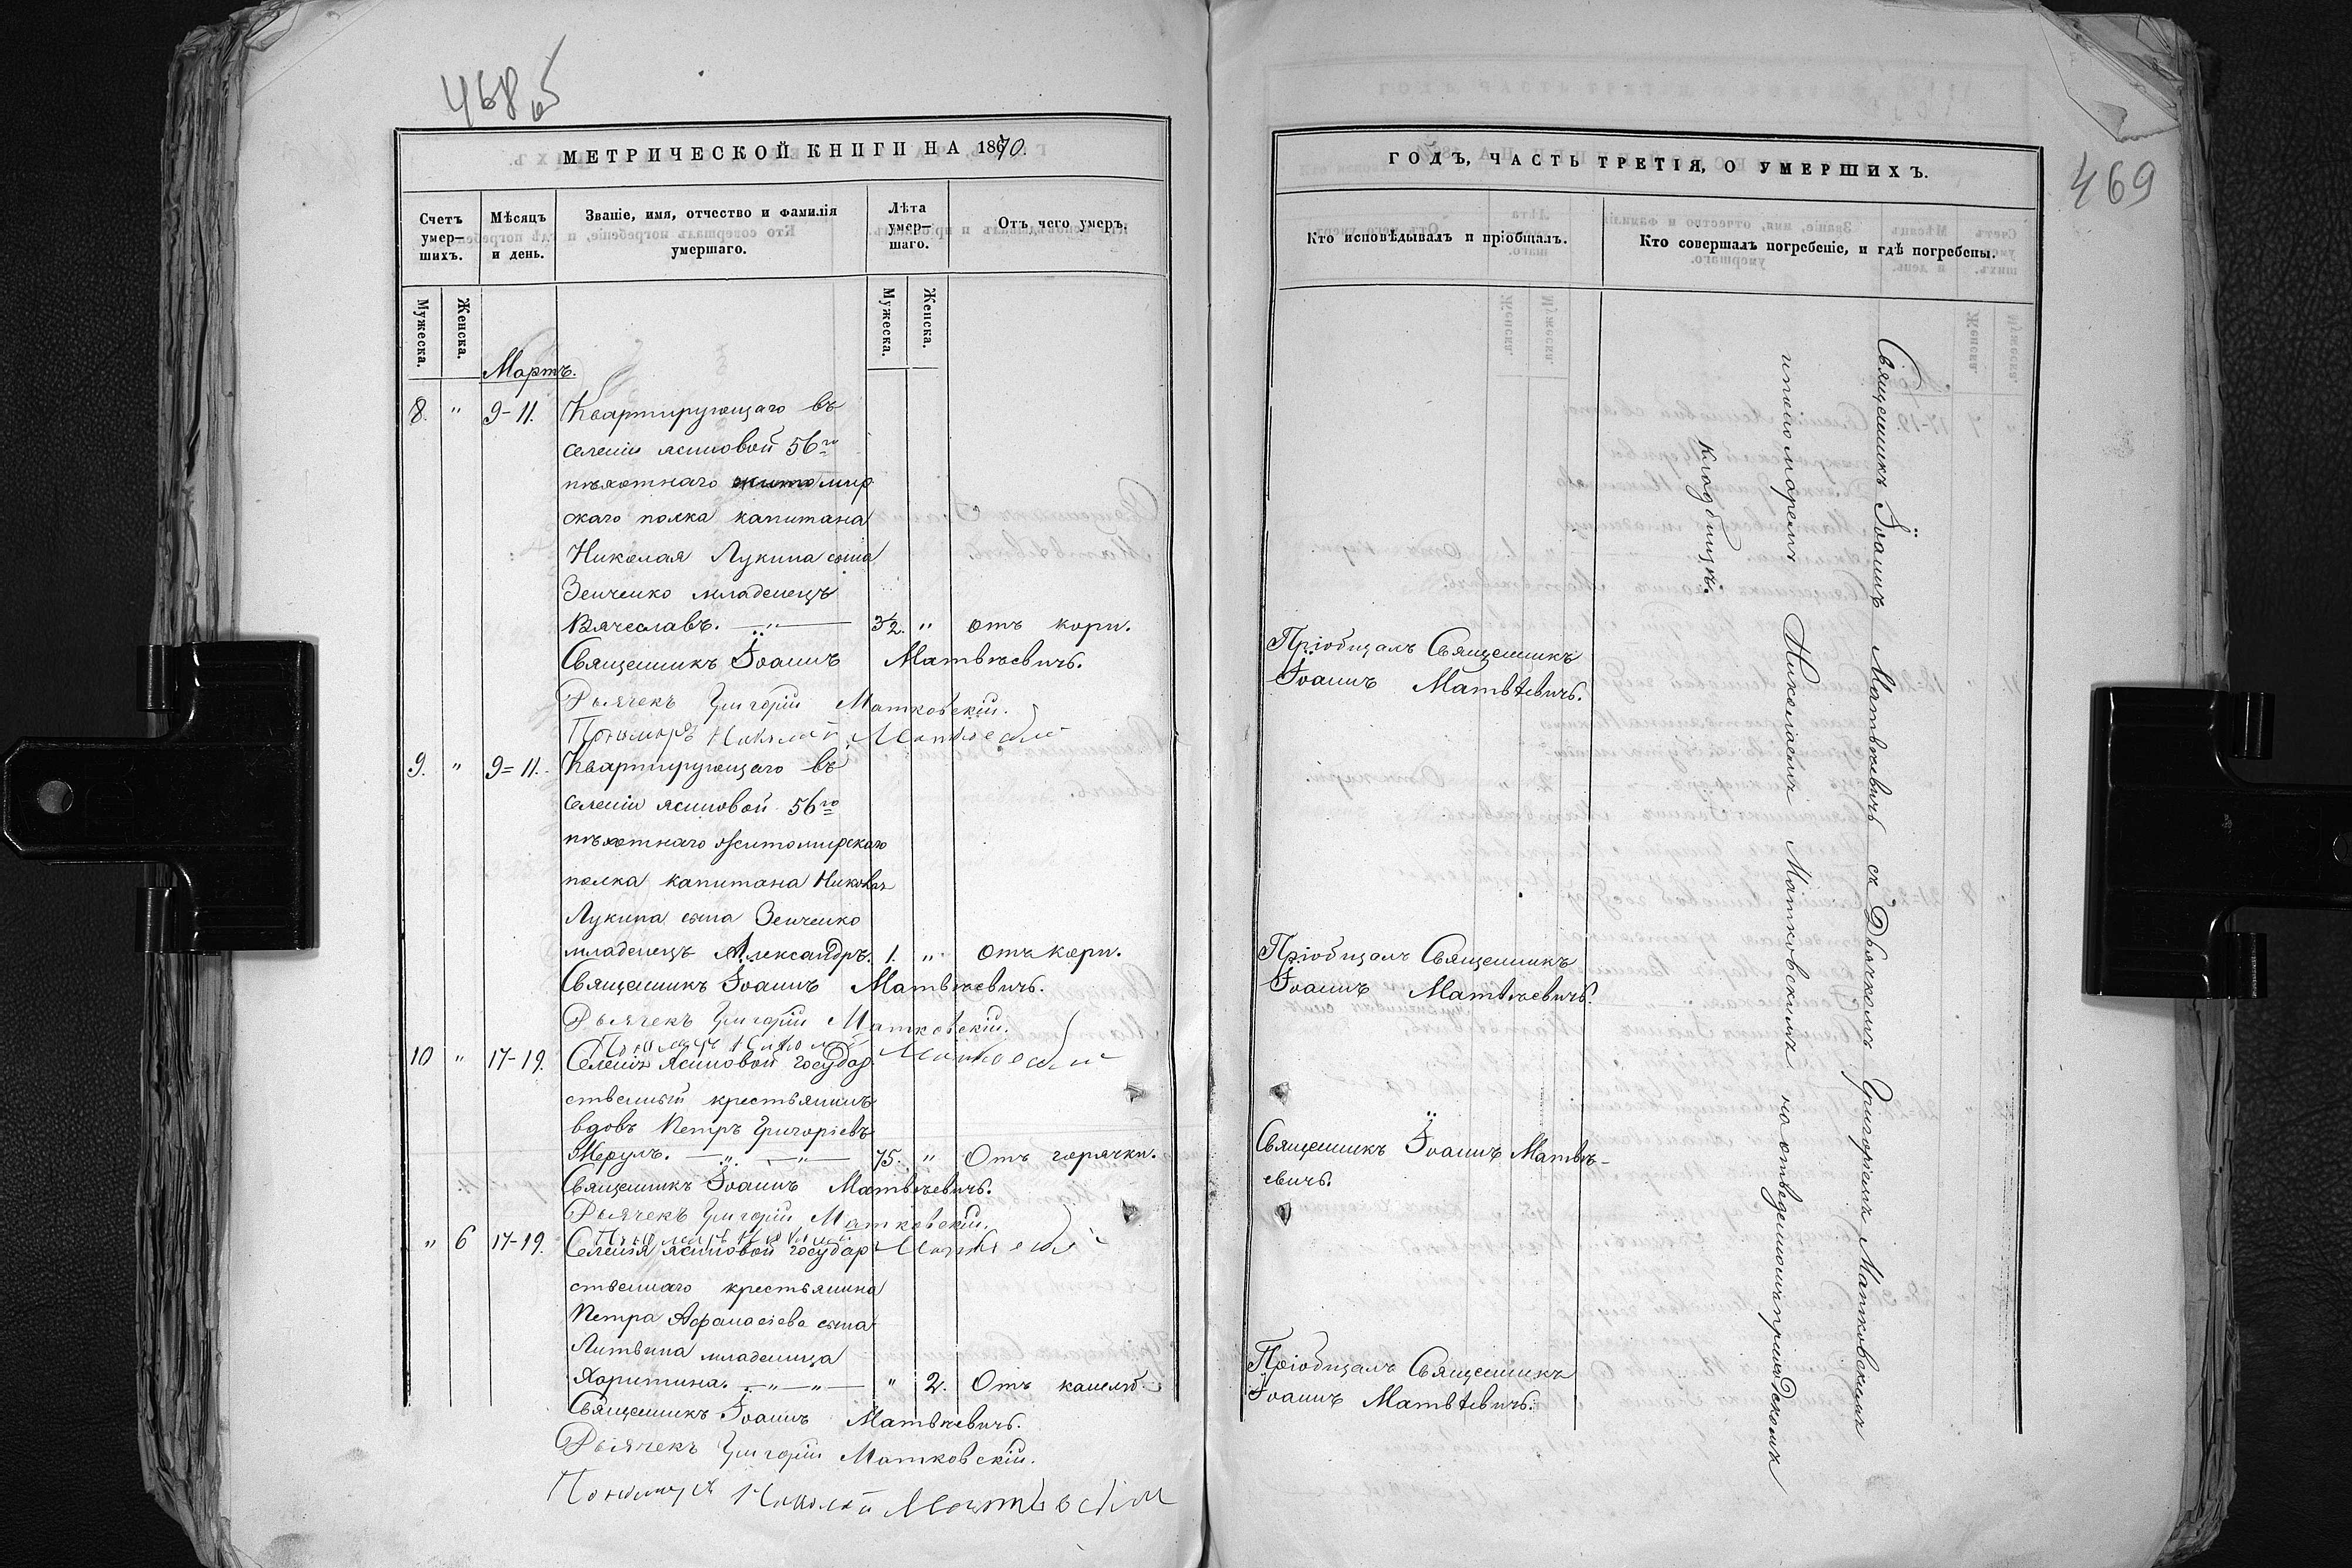 468 об
МЕТРИЧЕСКОЙ КНИГИ НА 1870.
Счетъ умер-шихъ.
Мѣсяцъ и день.
Званіе, имя, отчество и фамилія умершаго.
Лѣта умер-шаго.
Отъ чего умеръ.
Мужеска.
Женска.
Мужеска.
Женска.
Мартъ.
8. " 9-11. Квартирующаго въ
селеніи Ясиновой 56го
пѣхотнаго житомир
скаго полка капитана
Николая Лукина сына
Зенченко младенецъ
Вячеславъ. —"— 3/2. " отъ кори.
Священникъ Іоаннъ Матвѣевичъ.
Дьячекъ Григорій Матковскій.
Пономарь Николай Матковскій
9. " 9=11. Квартирующаго въ
селеніи Ясиновой 56го
пѣхотнаго Житомирскаго
полка капитана Николая
Лукина сына Зенченко
младенецъ Александръ. 1. " отъ кори.
Священникъ Іоаннъ Матвѣевичъ.
Дьячекъ Григорій Матковскій.
Пономарь Николай Матковскій
10 " 17-19. Селенія Ясиновой государ
ственный крестьянинъ
вдовъ Петръ Григоріевъ
Мерулъ. —"— —"— 75. " Отъ горячки.
Священникъ Іоаннъ Матвѣевичъ.
Дьячекъ Григорій Матковскій.
Пономарь Николай Матковскій
" 6 17-19. Селенія Ясиновой государ
ственнаго крестьянина
Петра Афанасіева сына
Литвина младеница
Харитина. —"—"— " 2. Отъ кашелю.
Священникъ Іоаннъ Матвѣевичъ.
Дьячекъ Григорій Матковскій.
Пономарь Николай Матковскій
469
ГОДЪ, ЧАСТЬ ТРЕТІЯ, О УМЕРШИХЪ.
Кто исповѣдывалъ и пріобщалъ.
Кто совершалъ погребеніе, и гдѣ погребены.
Пріобщалъ Священникъ
Іоаннъ Матвѣевичъ.
Пріобщалъ Священникъ
Іоаннъ Матвѣевичъ.
Священникъ Іоаннъ Матвѣ-
евичъ.
Пріобщалъ Священникъ
Іоаннъ Матвѣевичъ.
Священникъ Іоаннъ Матвѣевичъ съ Дьячкомъ Григоріемъ Матковскимъ
и пономаремъ Николаемъ Матковскимъ на отведенномъ приходскомъ
кладбищѣ.